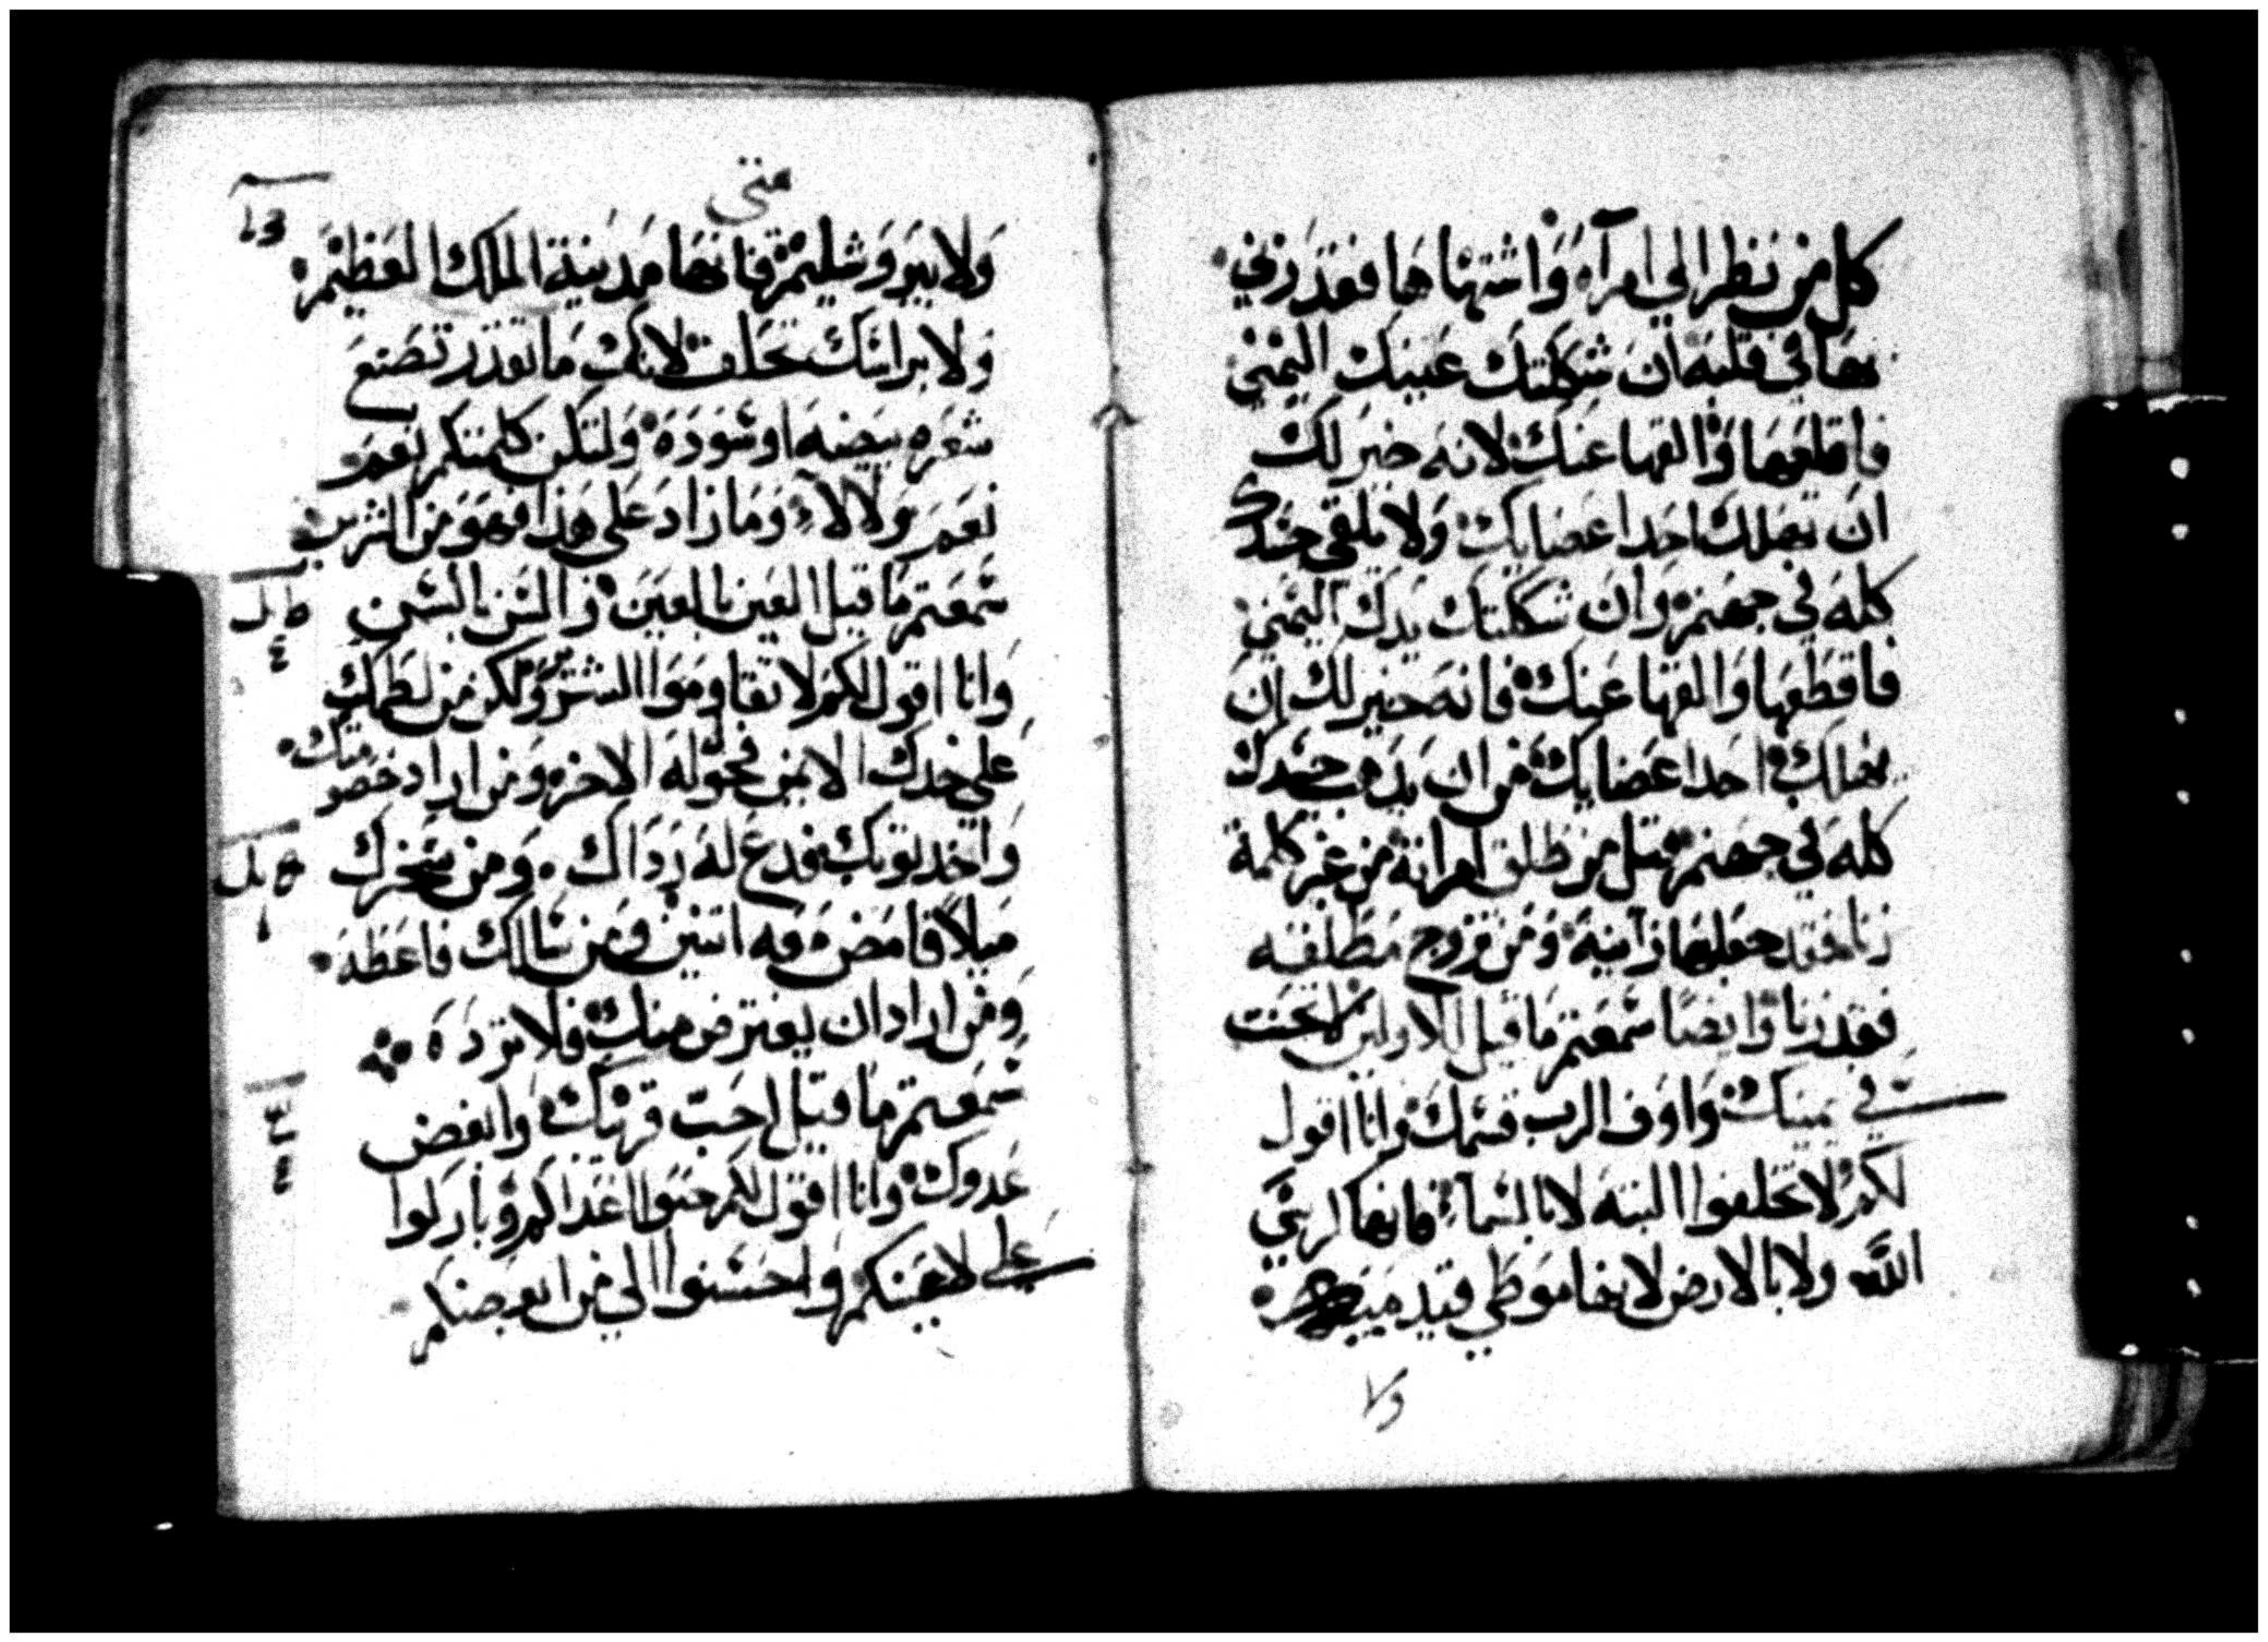 كل من نظر الي امرآه وَاشتهاها فقد زني
بها في قلبه ان شككتك عينك اليمني
فاقلعها وَالقها عنك لانه خير لك
ان تهلك احد اعضايك ولا يلقي جسدك
كله في جهنم وان شككتك يدك اليمني
فاقطعها وَالقها عنك فانه خير لك ان
يهلك احد اعضايك من ان يذهب جسدك
كله في جهنم قيل من طلق امراته من غير كلمة
زنا فقد جعلها زانية وَمن تزوج مطلقه
فقد زنا وايضا سمعتم ما قيل للاولين لا تحنت
في يمينك وَاوف الرب قسمك وانا اقول
لكم لا تحلفوا البته لا بالسمآء فانها كرسي
الله ولا بالارض لانها موطي قدميه
ولا
متي
وَلا بيروشليم فانها مدينة الملك العظيم
ولا براسك تحلف لانك ما تقدر تصنع
شعره بيضه او سَودَه ولتكن كلمتكم نعم
نعم ولا لاء وَما زاد عَلي هذا فهو من الشرير
سمعتم ما قيل العين بالعين والسن بالسن
وانا اقول لكم لا تقاوموا الشر ولكن من لطمك
علي خدك الايمن فحول له الاخر ومن اراد خصومتك
واخد ثوبك فدع له رداك ومن سخرك
ميلا فامض معه اتنين ومن سالك فاعطه
ومن اراد ان يقترض منك فلا ترده
سمعتم ما قيل احب قريبك وابغض
عدوك وانا اقول لكم حبوا اعداكم وباركوا
علي لاعنيكم واحسنوا الي من ابغضكم